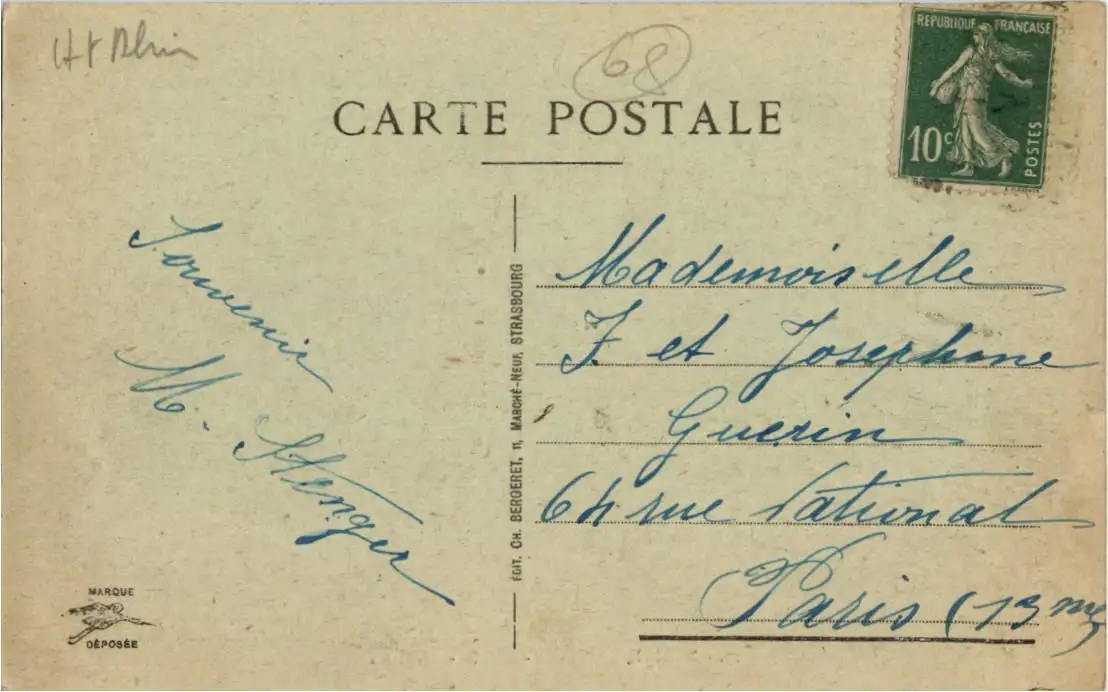 Ht Rhin
68
CARTE POSTALE
REPUBLIQUE FRANÇAISE
10c
POSTES
Souvenir
M. Stenger
ÉDIT. CH. BERGERET, 11, MARCHÉ-NEUF, STRASBOURG
Mademoiselle
J. et Josephine
Guerin
64 rue National
Paris (13me)
MARQUE
DÉPOSÉE